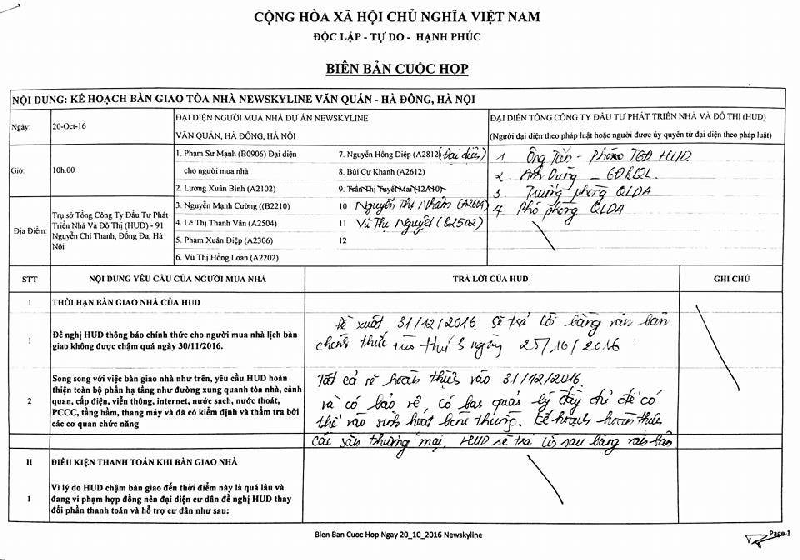 CỘNG HÒA XÃ HỘI CHỦ NGHĨA VIỆT NAM
ĐỘC LẬP - TỰ DO - HẠNH PHÚC
BIÊN BẢN CUỘC HỌP
NỘI DUNG: KẾ HOẠCH BÀN GIAO TÒA NHÀ NEWSKYLINE VĂN QUÁN - HÀ ĐÔNG, HÀ NỘI
Ngày:
20-Oct-16
ĐẠI DIỆN NGƯỜI MUA NHÀ DỰ ÁN NEWSKYLINE
VĂN QUÁN, HÀ ĐÔNG, HÀ NỘI
ĐẠI DIỆN TỔNG CÔNG TY ĐẦU TƯ PHÁT TRIỂN NHÀ VÀ ĐÔ THỊ (HUD)
(Người đại diện theo pháp luật hoặc người được ủy quyền từ đại diện theo pháp luật)
Giờ:
10h.00
Địa Điểm
Trụ sở Tổng Công Ty Đầu Tư Phát
Triển Nhà Và Đô Thị (HUD) - 91
Nguyễn Chí Thanh, Đống Đa, Hà
Nội
1. Phạm Sư Mạnh (B0906) Đại diện
cho người mua nhà
2. Lương Xuân Bình (A2102)
3. Nguyễn Mạnh Cường ((B2210)
4. Lê Thị Thanh Vân (A2504)
5. Phạm Xuân Điệp (A2306)
6. Vũ Thị Hồng Loan (A2202)
7. Nguyễn Hồng Diệp (A2812) (đại diện)
8. Bùi Cự Khanh (A2612)
10 Nguyễn Thị
11 Vũ Thị Nguyệt (B2502)
12
1 Ông Tiến - Phó TGĐ HUD
2 Dũng
3. Trưởng phòng QLDA
4. Phó phòng QLDA
STT
NỘI DUNG YÊU CẦU CỦA NGƯỜI MUA NHÀ
TRẢ LỜI CỦA HUD
GHI CHÚ
I
THỜI HẠN BÀN GIAO NHÀ CỦA HUD
1
Đề nghị HUD thông báo chính thức cho người mua nhà lịch bàn
giao không được chậm quá ngày 30/11/2016.
Đề xuất 31/12/2016 sẽ trả lời bằng văn bản
chính thức vào thứ 3 ngày 25/10/2016
2
Song song với việc bàn giao nhà như trên, yêu cầu HUD hoàn
thiện toàn bộ phần hạ tầng như đường xung quanh tòa nhà, cảnh
quan, cấp điện, viễn thông, internet, nước sạch, nước thoát,
PCCC, tầng hầm, thang máy và đã có kiểm định và thẩm tra bởi
các cơ quan chức năng
Tất cả sẽ hoàn thiện vào 31/12/2016
và có bảo vệ, có ban quản lý đầy đủ để có
thể vào sinh hoạt bình thường. Kế hoạch hoàn thiện
các sàn thương mại, HUD sẽ trả lời sau bằng văn bản
II
ĐIỀU KIỆN THANH TOÁN KHI BÀN GIAO NHÀ
1
Vì lý do HUD chậm bàn giao đến thời điểm này là quá lâu và
đang vi phạm hợp đồng nên đại diện cư dân đề nghị HUD thay
đổi phần thanh toán và hỗ trợ cư dân như sau:
Bien Ban Cuoc Hop Ngay 20_10_2016 Newskyline
Page 1